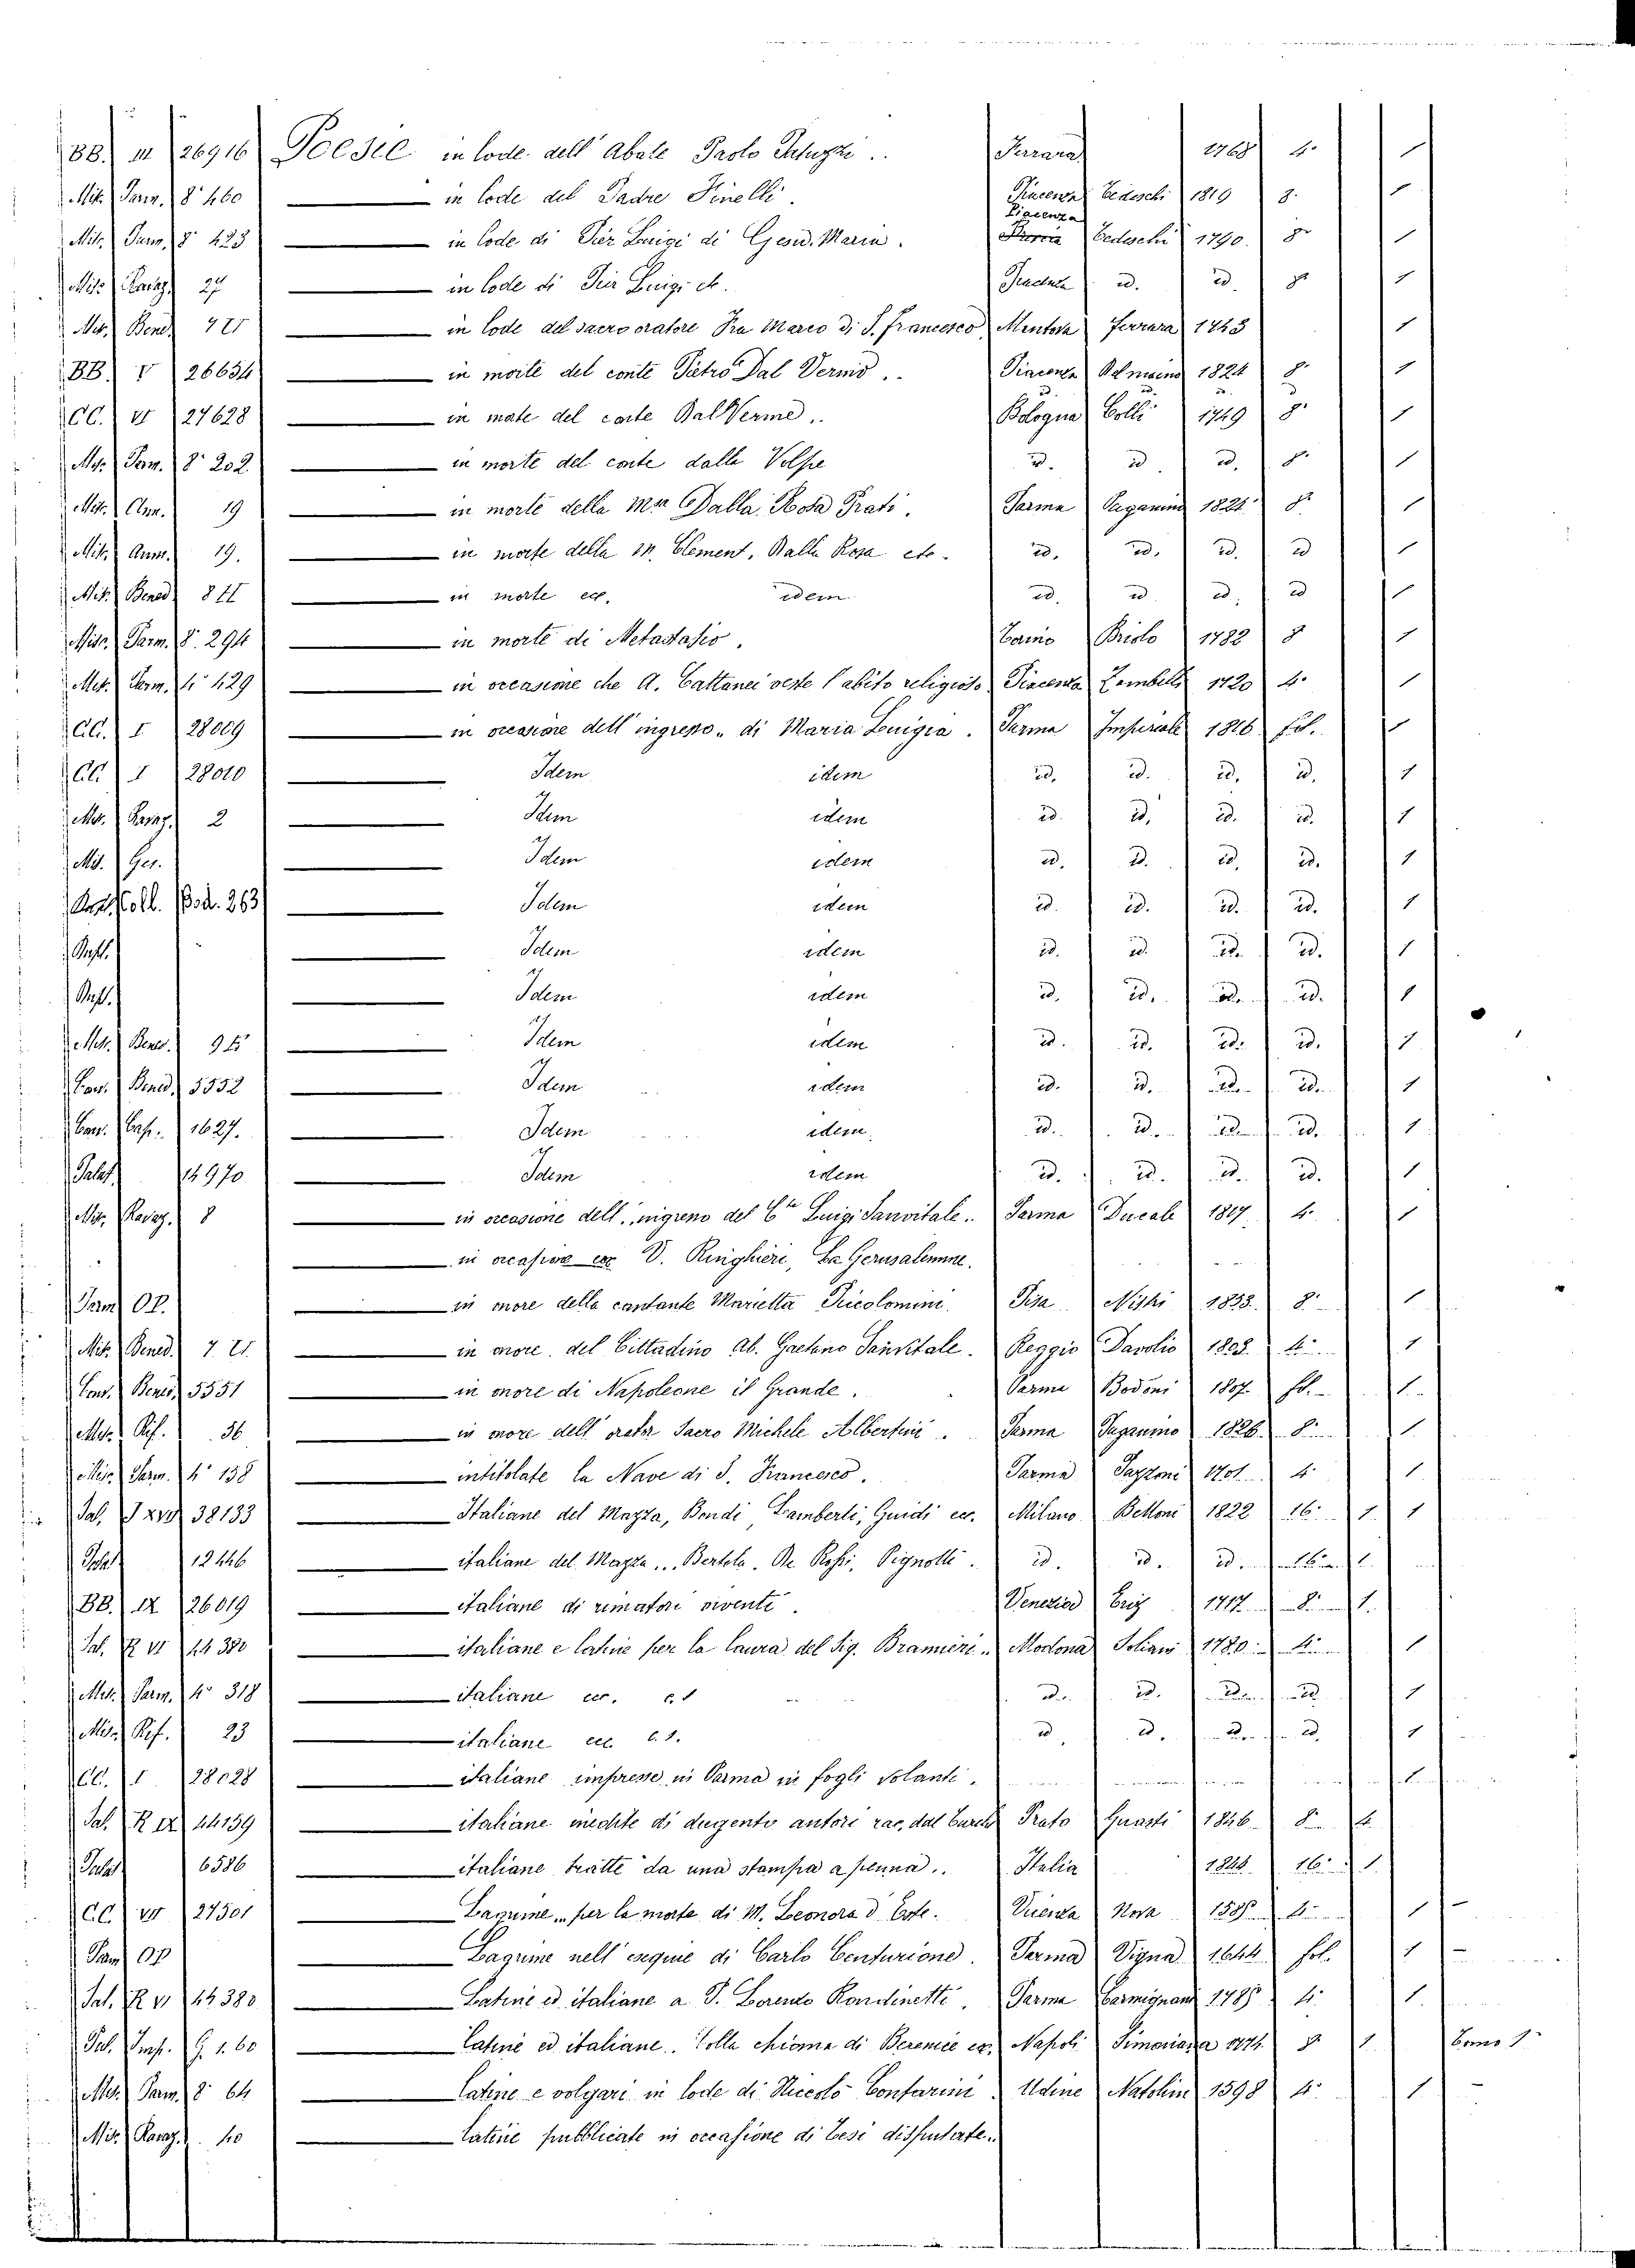 BB. III 26916 Poesie in lode dell' Abate Paolo .. Ferrara 1768 4.
Mis. Parm. 8° 460 — in lode del Padre Finelli. Piacenza Tedeschi 1819 8.
Mis. Parm. 8° 423 — in lode di Pier Luigi di Gesù. Maria. Piacenza Tedeschi 1790. 8°
Mis. Ravaz. 27 — in lode di Pier Luigi etc. id. id. 8°
Mis. Bened. — in lode del sacro oratore Fra Marco di S. Francesco Mantova Ferrara 1
BB. V 26634 — in morte del conte Pietro Dal Verme .. Piacenza 1824 8.
CC. VI 27628 — in morte del conte Dal Verme .. Bologna Colli 1749 8.
Mis. Parm. 8° 202 — in morte del conte dalla Volpe id. id. id. 8.
Mis. Ann. 19 — in morte della Mna Dalla Rosa Prati. Parma Paganino 1821 8.
Mis. Ann. 19. — in morte della M. Clement. Dalla Rosa etc. id. id. id. id
Mis. Bened. — in morte ecc. idem id. id id. id
Mis. Parm. 8° 294 — in morte di Metastasio. Torino Briolo 1782 8
Mis. Parm. 4° 429 — in occasione che A. Cattanei veste l'abito religioso Piacenza Zambelli 1720 4.
CC. I 28009 — in occasione dell' ingresso .. di Maria Luigia. Parma Imperiale 1816 fol. 1
CC. I 28010 — Idem idem id. id. id. id. 1
Mis. Ravaz. 2 — Idem idem id. id. id. id. 1
Mis. Ges. — Idem idem id. id. id. id. 1
Coll. Bod. 263 — Idem idem id. id. id. id. 1
— Idem idem id. id. id. id. 1
— Idem idem id. id. id. id. 1
Mis. Bened. 9 — Idem idem id. id. id. id. 1
Con. Bened. 5552 — Idem idem id. id. id. id. 1
Con. Cap. 1627. — Idem idem. id. id. id. id. 1
Palat. 14970 — Idem idem id. id. id. id. 1
Mis. Ravaz. 8 — in occasione dell' ingresso del Cte Luigi Sanvitale .. Parma Ducale 1817 4. 1
— in occasione ecc V. Ringhieri, La Gerusalemme.
Parm OP. — in onore della cantante Marietta Piccolomini. Pisa Nistri 1853. 8. 1
Mis. Bened. — in onore del Cittadino Ab. Gaetano Sanvitale. Reggio Davolio 1803. 4. 1
Con. Bened. 5551 — in onore di Napoleone il Grande. Parma Bodoni 1807. fol. 1
Mis. Rif. 36 — in onore dell' orator Sacro Michele Albertini. Parma Paganino 1826. 8. 1
Mis. Parm. 4° 158 — intitolate la Nave di S. Francesco. Parma Pazzoni 1701 4. 1
Pal. 38133 — Italiane del Mazza, Bondi, Lamberti, Guidi ecc. Milano Bettoni 1822 16. 1 1
Palat 12446 — italiane del Mazza ... Bertola. De Rossi, Pignotti. id. id. id. 16. 1
BB. IX 26019 — italiane di rimatori viventi. Venezia 1717 8. 1.
Pal. R VI 44380 — italiane e latine per la laurea del Sig. Bramieri .. Modona Soliani 1780 4. 1
Mis. Parm. 4° 318 — italiane ecc. c.s id. id. id. id 1
Mis. Rif. 23 — italiane ecc c.s. id. id. id. id. 1
CC. I 28028 — italiane impresse in Parma in fogli volanti. 1
Pal. R IX 44159 — italiane inedite di dugento autori rac. dal Trucchi Prato Guasti 1846 8. 4.
Palat 6586 — italiane tratte da una stampa a penna .. Italia 16. 1.
CC. VI 27301 — Lagrime .. per la morte di M. Leonora d' Este. Vicenza Nova 1585 4. 1 -
Parm OP — Lagrime nell' esequie di Carlo Centurione. Parma Vigna 1644 fol. 1 -
Pal. R VI 44380 — Latine ed italiane a P. Lorenzo Rondinetti. Parma Carmignani 1785 4. 1.
Pal. G. 1. 60 — Latine ed italiane .. Colla chioma di Berenice ecc. Napoli Simoniana 1774 8 1 Tomo 1°
Mis. Parm. 8° 64 — Latine e volgari in lode di Niccolò Contarini Udine Natolini 1598 4. 1 -
Mis. Ravaz. 40 — Latine pubblicate in occasione di Tesi disputate ..